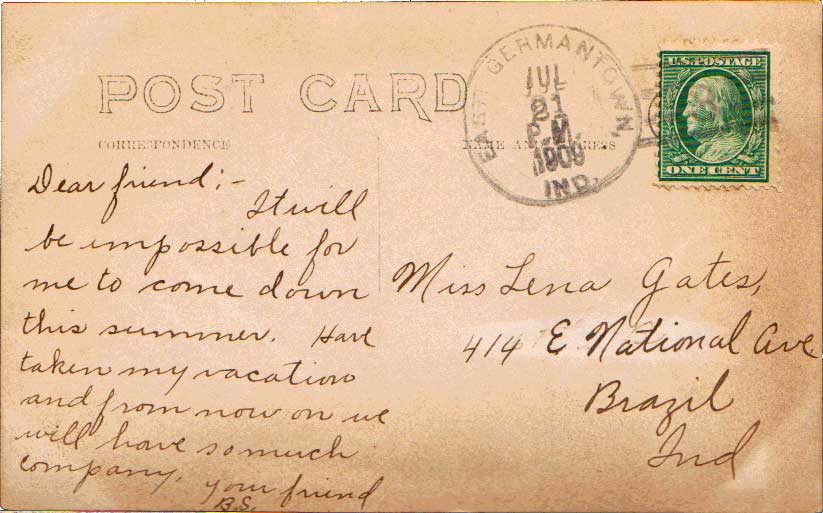 POST CARD
CORRESPONDENCE
NAME AND ADDRESS
EAST GERMANTOWN, IND.
JUL
21
P.M.
1909
U.S. POSTAGE
ONE CENT
Dear friend; –
It will
be impossible for
me to come down
this summer. Have
taken my vacation
and from now on we
will have so much
company. your friend
B.S.
Miss Lena Gates,
414 E National Ave
Brazil
Ind